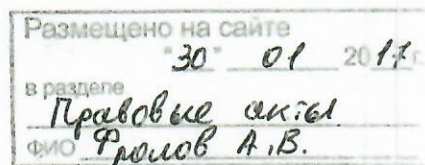 Размещено на сайте
"30" 01 2017 г.
в разделе
Правовые акты
ФИО Фролов А.В.